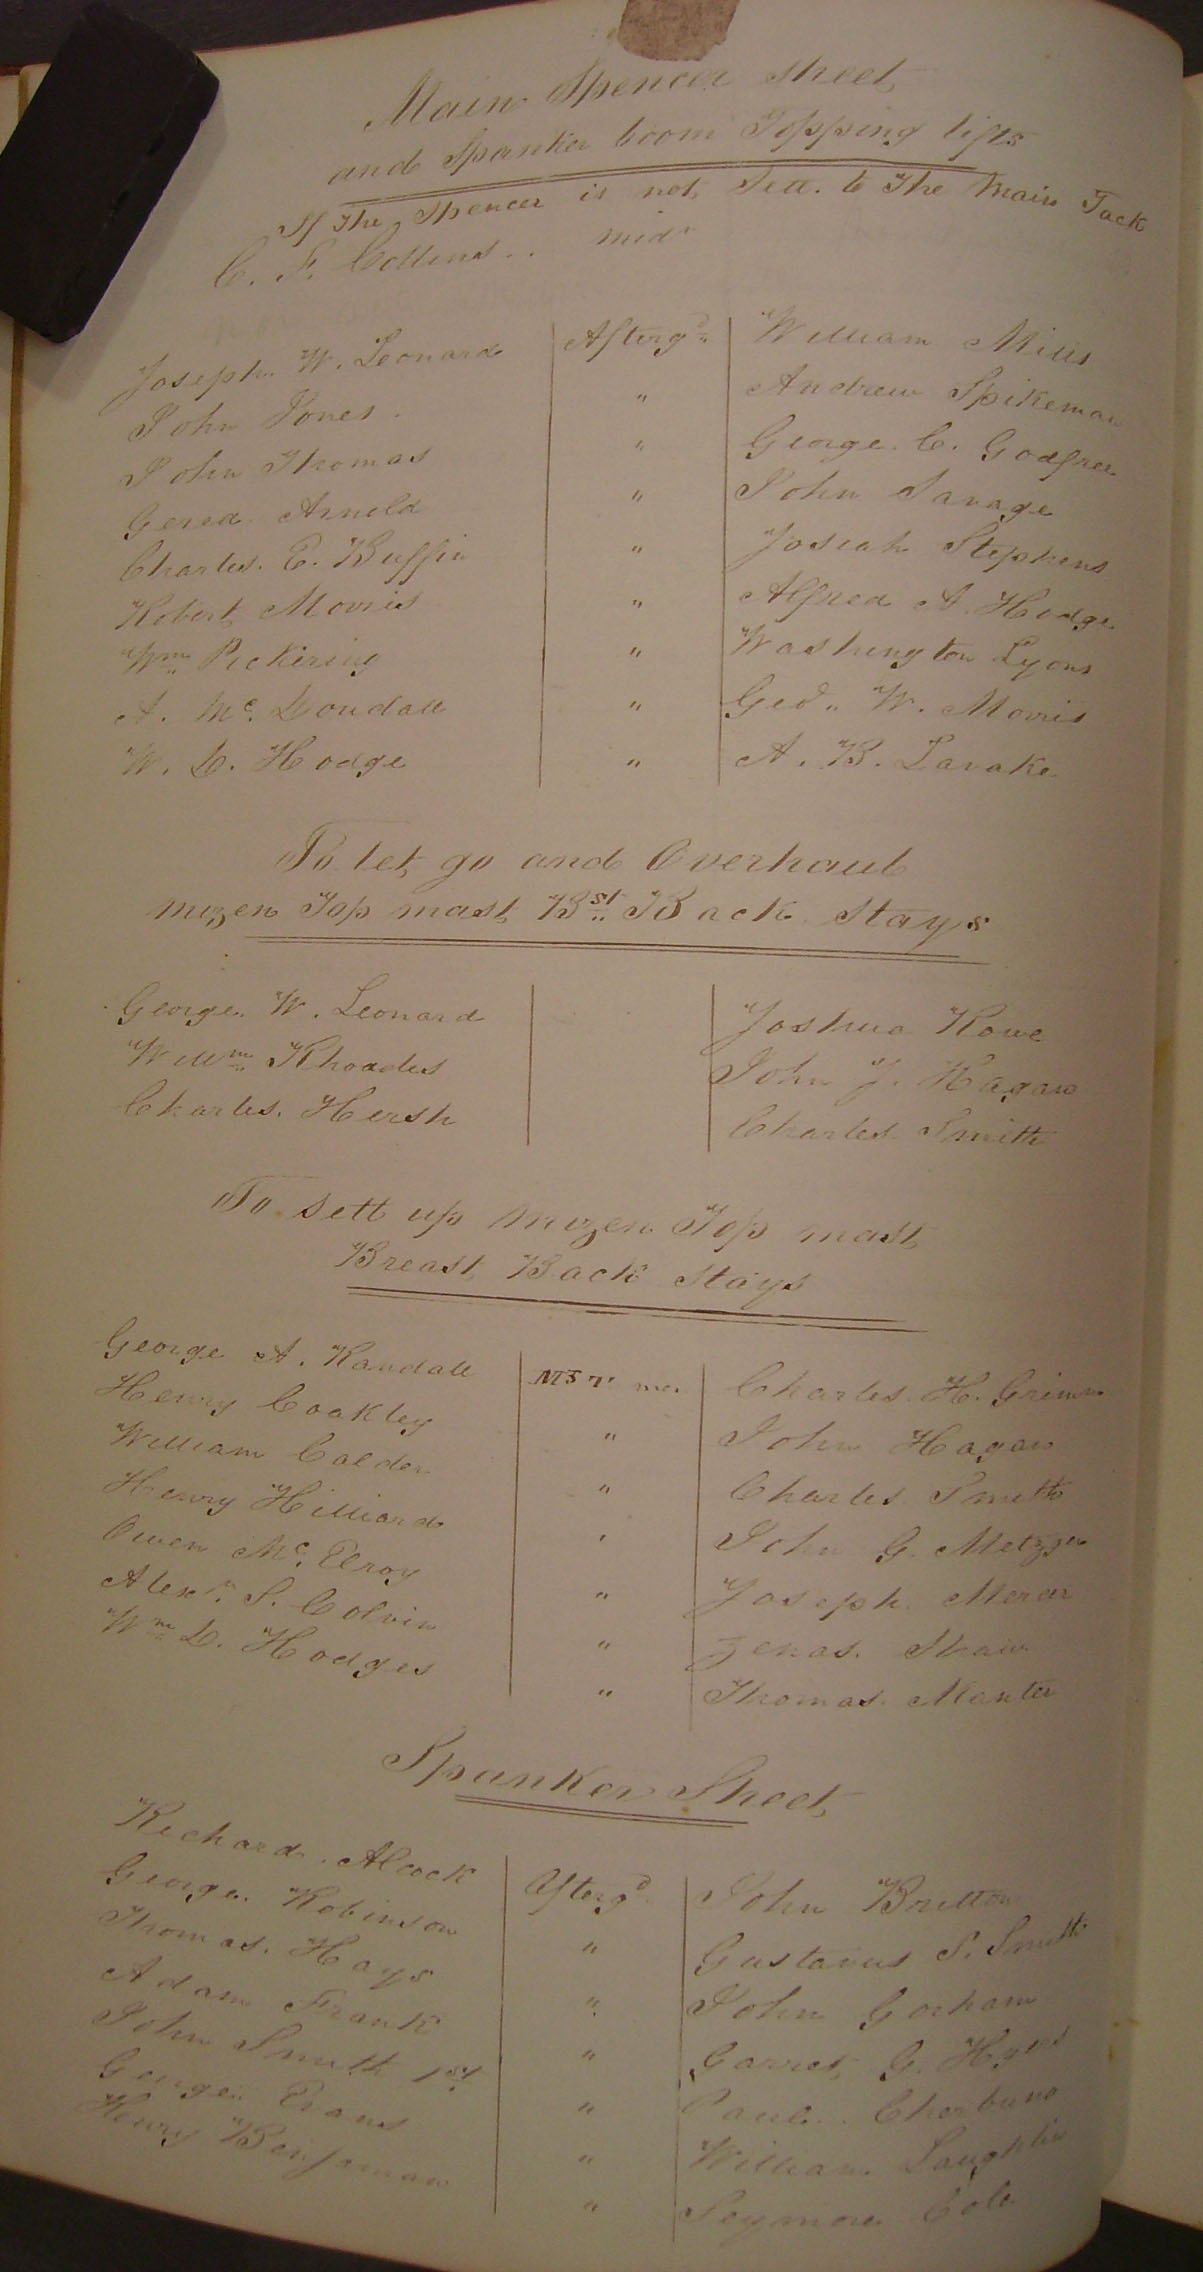 Main Spencer Sheet
and Spanker boom Topping lifts
If The Spencer is not Sett. to The Main Tack
C. F. Collins .. mid
Joseph. W. Leonard Afterg.d William Mills
John Jones. " Andrew Spikeman
John Thomas " George. C. Godfree
Gered Arnold " John Savage
Charles. E. Buffin " Josiah Stephens
Robert Morris " Alfred A. Hodge
Wm Pickering " Washington Lyons
A. Mc. Doudall " Geo.. W. Morris
W. D. Hodge " A. B. Lavake
To let go and Overhaul
mizen Top mast Bst Back Stays
George. W. Leonard Joshua Rowe
Willm Rhoades John J. Hagan
Charles. Hersh Charles Smith
To sett up mizen Top mast
Breast Back Stays
George A. Randall Charles. H. Grimm
Henry Coakley " John Hagan
William Calder " Charles Smith
Henry Hilliard " John G. Metzger
Owen Mc. Elroy " Joseph. Mercer
Alexr. S. Colvin " Zenas. Shaw
Wm D. Hodges " Thomas. Manter
Spanker Sheet
Richard. Alcock Afterg.d John Britton
George. Robinson " Gustavus S. Smith
Thomas. Hays " John Gorham
Adam Frank " Garret G. Hynd
John Smith 1st " Paul.
George. Evans " William Laughlin
Henry " Seymore Cole